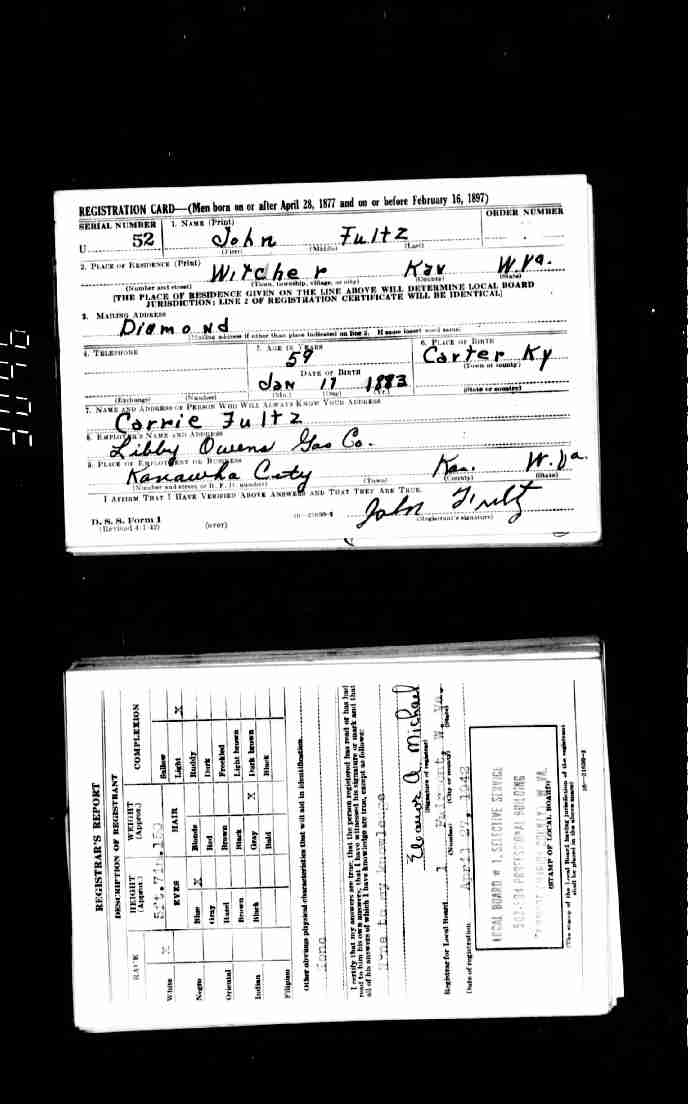 REGISTRATION CARD—(Men born on or after April 28, 1877 and on or before February 16, 1897)
SERIAL NUMBER 1. NAME (Print) ORDER NUMBER
U 52 John Fultz
(First) (Middle) (Last)
2. PLACE OF RESIDENCE (Print)
Witcher Kav W.Va.
(Number and street) (Town, township, village, or city) (County) (State)
[THE PLACE OF RESIDENCE GIVEN ON THE LINE ABOVE WILL DETERMINE LOCAL BOARD
JURISDICTION; LINE 2 OF REGISTRATION CERTIFICATE WILL BE IDENTICAL]
3. MAILING ADDRESS
Diamond
[Mailing address if other than place indicated on line 2. If same insert word same]
4. TELEPHONE 5. AGE IN YEARS 6. PLACE OF BIRTH
59 Carter Ky
DATE OF BIRTH (Town or county)
Jan 17 1883
(Exchange) (Number) (Mo.) (Day) (Yr.) (State or country)
7. NAME AND ADDRESS OF PERSON WHO WILL ALWAYS KNOW YOUR ADDRESS
Carrie Fultz
8. EMPLOYER'S NAME AND ADDRESS
Libby Owens Gas Co.
9. PLACE OF EMPLOYMENT OR BUSINESS
Kanawha City Kan. W.Va.
(Number and street or R. F. D. number) (Town) (County) (State)
I AFFIRM THAT I HAVE VERIFIED ABOVE ANSWERS AND THAT THEY ARE TRUE.
John Fultz
D. S. S. Form 1
(Revised 4-1-42) (over) 16—21630-2 (Registrant's signature)
REGISTRAR'S REPORT
DESCRIPTION OF REGISTRANT
RACE HEIGHT (Approx.) WEIGHT (Approx.) COMPLEXION
White X 5ft.7in. 150 Sallow
EYES HAIR Light X
Negro Blue X Blonde Ruddy
Gray Red Dark
Oriental Hazel Brown Freckled
Brown Black Light brown
Indian Black Gray X Dark brown
Bald Black
Filipino
Other obvious physical characteristics that will aid in identification
I certify that my answers are true; that the person registered has read or has had
read to him his own answers; that I have witnessed his signature or mark and that
all of his answers of which I have knowledge are true, except as follows:
None to my knowledge
Eleanor A Michael
(Signature of registrar)
Registrar for Local Board 1 W. Va.
(Number) (City or county) (State)
Date of registration April 27, 1942
LOCAL BOARD # 1, SELECTIVE SERVICE
PROFESSIONAL BUILDING
(STAMP OF LOCAL BOARD)
(The stamp of the Local Board having jurisdiction of the registrant
shall be placed in the above space)
16—21630-2